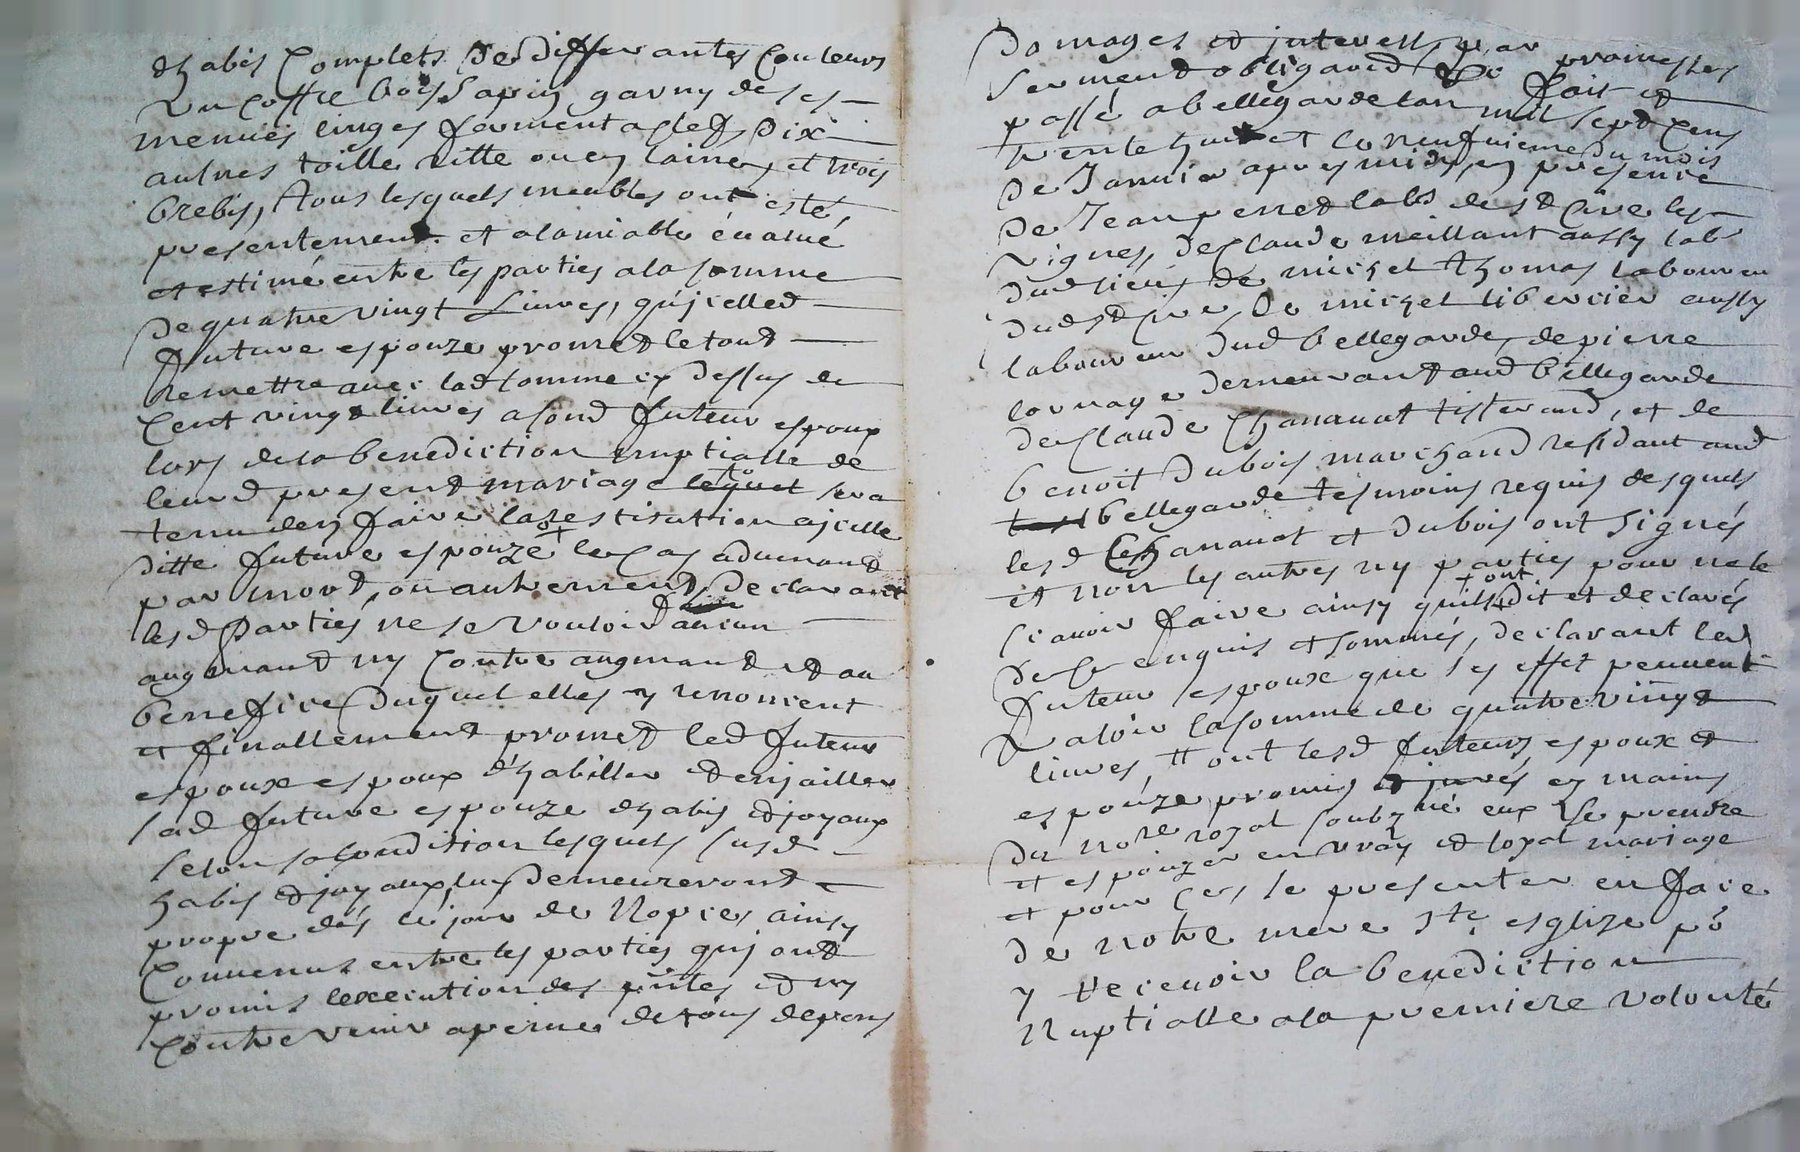 dhabis Complets De differantes Couleurs
Un Coffre bois Sapin garny de ses
menuës linges fermant a clef, Dix
autres toille ritte ou en laine, et trois
brebis, tous lesquels meubles ont esté
presentement et a lamiable évalué
et estimé entre les parties a la somme
De quatre vingt Livres, qu'jcelled
future espouze promet le tout
Remettre avec lad somme cy dessus de
Cent vingt livres a sond futeur espoux
lors de la benediction nuptialle de
leurd present mariage lequel sera
tenu den faire la restitution a jcelle
ditte future espouze le Cas advenant
par mort, ou autrement, Declarant
lesd Parties ne se vouloir aucun
augmand ny Contre augmand et au
benefice Duquel elles y renoncent
et finallement promet led futeur
espoux espoux d'habiller et enjailler
lad future espouze dhabis et joyaux
selon sa Condition lesquels susd
habis et joyaux luy Demeureront
propre dés le jour de Nopces ainsy
Convenus entre les parties quj ont
promis lexecution des pntes et ny
Contrevenir a peine de tous depens
Domages et jnterests, par promesses
serment obligaond &c fait et
passé a bellegarde lan mil sept Cens
trente huit et le neufvieme du mois
De Janvier apres midy, en presence
De Jean perret labr de st Cire les
vignes, de Claude meillant aussy labr
dud lieu, de michel thomas laboureur
dud st Cire, De michel libercier aussy
laboureur dud bellegarde, de pierre
lornage Demeurant aud bellegarde
de Claude Chananat tisserand, et de
benoit Dubois marchand residant aud
bellegarde tesmoins requis desquels
lesd Chananat et Dubois ont signés
et non les autres ny parties pour ne le
scavoir faire ainsy quils ont dit et declarés
De ce enquis et sommés, declarant led
futeur espoux que ses effet peuvent
valoir la somme de quatre vingt
livres, tt ont lesd futeurs espoux et
espouze promis et jurés es mains
du notre royal soubzné eux se prendre
et espouzer en vray et loyal mariage
et pour Ces se presenter en face
De notre mere ste esglize po
y recevoir la benediction
Nuptialle a la premiere volonté